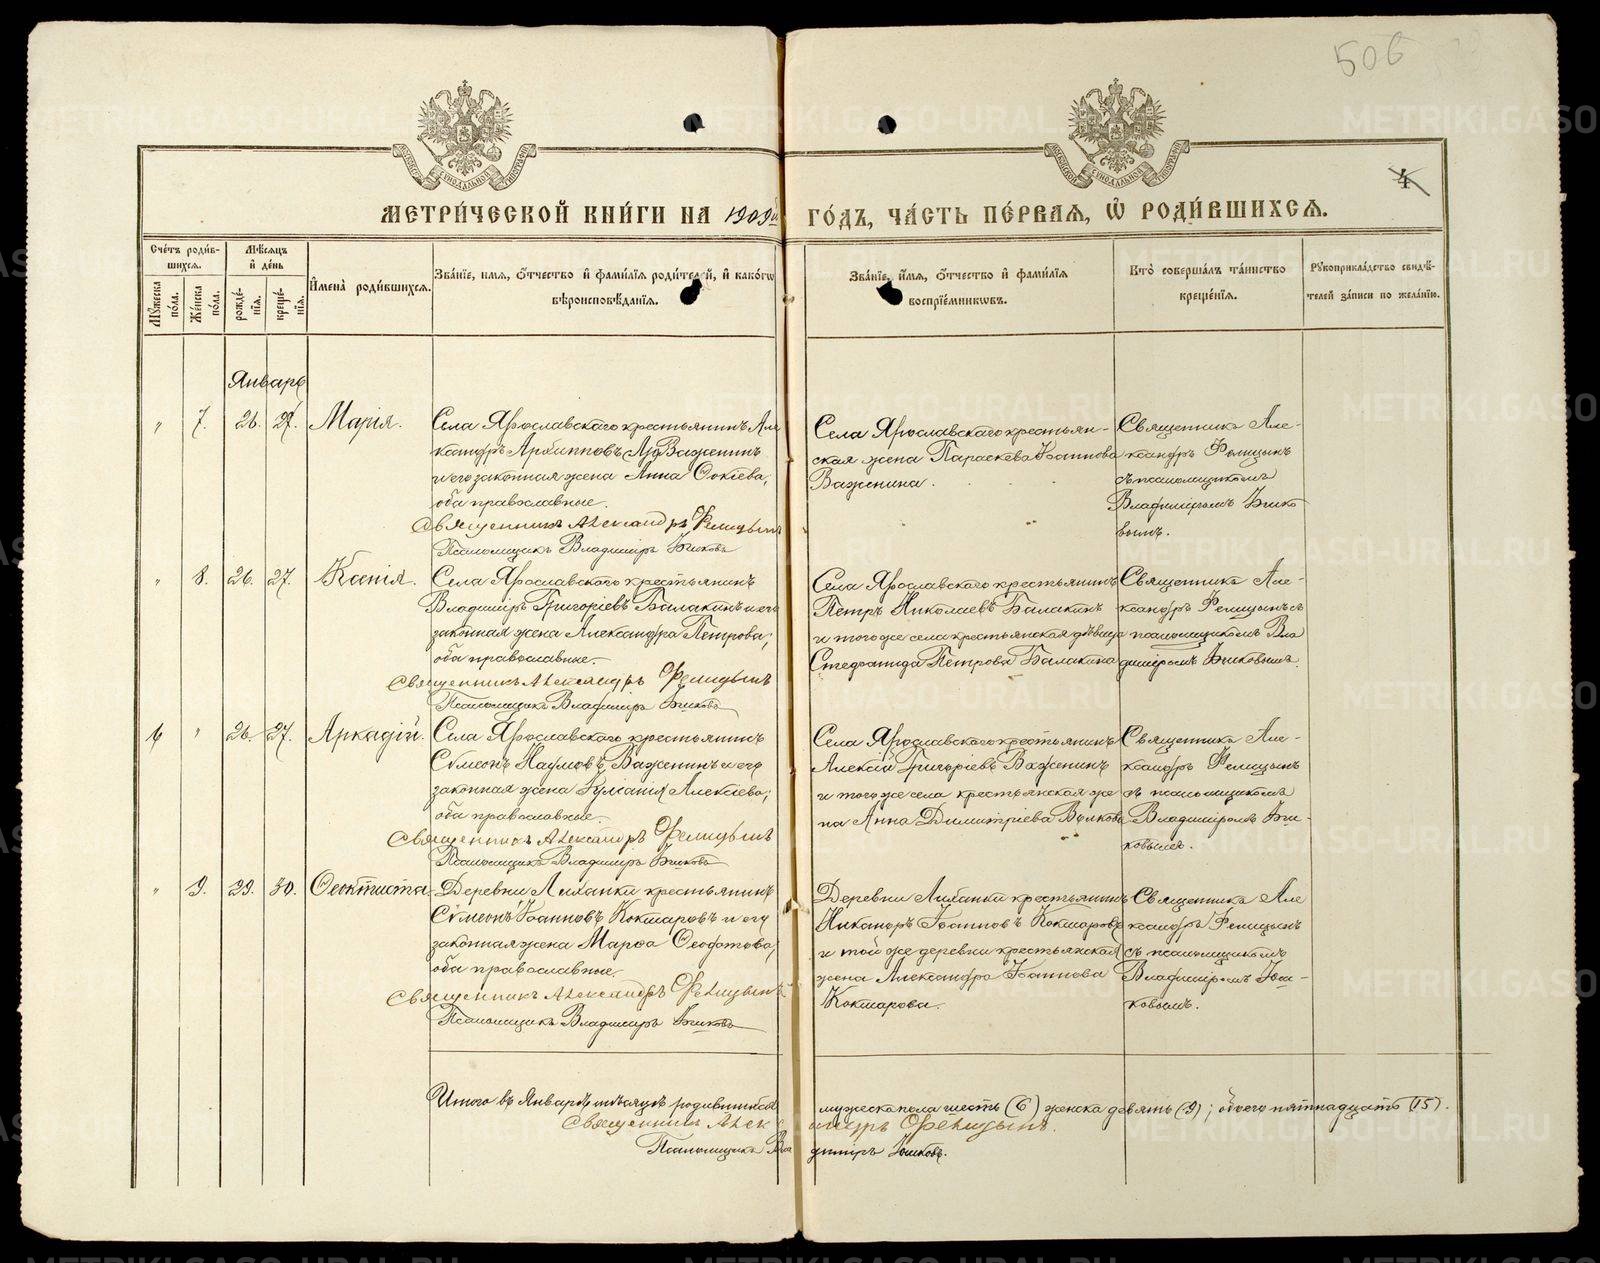 506
4
МЕТРИ́ЧЕСКОЙ КНИ́ГИ НА 1909й ГО́ДЪ, ЧА́СТЬ ПЕ́РВАѦ, Ѽ РОДИ́ВШИХСѦ.
Сче́тъ роди́вшихсѧ.
Мѣ́сѧцъ и҆ де́нь
Мꙋ́жеска по́ла.
Же́нска по́ла.
рожде́нїѧ.
креще́нїѧ.
И҆мена̀ роди́вшихсѧ.
Зва́нїе, имѧ, ѻ҆́тчество и҆ фами́лїѧ роди́телей, и҆ како́гѡ
вѣроисповѣ́данїѧ.
Зва́нїе, и҆́мѧ, ѻ҆́тчество и҆ фами́лїѧ
воспрїе́мникѡвъ.
Кто̀ соверша́лъ та́инство
креще́нїѧ.
Рꙋкоприкла́дство свидѣ́-
телей за́писи по жела́нїю.
Январь
" 7. 26. 27. Марія.
Села Ярославскаго крестьянинъ Але
ксандръ Архипповъ Важенинъ
и его законная жена Анна Сокіева,
оба православные.
Священникъ Александръ Фелицынъ
Псаломщикъ Владиміръ Юшковъ
Села Ярославскаго крестьян-
ская жена Параскева Іоаннова
Важенина.
Священникъ Але-
ксандръ Фелицынъ
съ псаломщикомъ
Владиміромъ Юшко
вымъ.
" 8. 26. 27. Ксенія.
Села Ярославскаго крестьянинъ
Владиміръ Григоріевъ Балакинъ и его
законная жена Александра Петрова,
оба православные.
Священникъ Александръ Фелицынъ
Псаломщикъ Владиміръ Юшковъ
Села Ярославскаго крестьянинъ
Петръ Николаевъ Балакинъ
и того же села крестьянская дѣвица
Стефанида Петрова Балакина
Священникъ Але-
ксандръ Фелицынъ съ
псаломщикомъ Вла
диміромъ Юшковымъ.
6 " 26. 27. Аркадій.
Села Ярославскаго крестьянинъ
Сѵмеонъ Наумовъ Важенинъ и его
законная жена Іуліанія Алексіева,
оба православные.
Священникъ Александръ Фелицынъ
Псаломщикъ Владиміръ Юшковъ
Села Ярославскаго крестьянинъ
Алексій Григоріевъ Важенинъ
и того же села крестьянская же
на Анна Димитріева Вълкова
Священникъ Але-
ксандръ Фелицынъ
съ псаломщикомъ
Владиміромъ Юш-
ковымъ.
" 9. 29. 30. Ѳеоктиста
Деревни Лиханки крестьянинъ
Сѵмеонъ Іоанновъ Кокшаровъ и его
законная жена Марѳа Ѳеодотова,
оба православные.
Священникъ Александръ Фелицынъ
Псаломщикъ Владиміръ Юшковъ
Деревни Лиханки крестьянинъ
Никаноръ Іоанновъ Кокшаровъ
и той же деревни крестьянская
жена Александра Іоаннова
Кокшарова.
Священникъ Але
ксандръ Фелицынъ
съ псаломщикомъ
Владиміромъ Юш-
ковымъ.
Итого въ Январѣ мѣсяцѣ родившихся мужеска пола шесть (6) женска девять (9); обоего пятнадцать (15).
Священникъ Александръ Фелицынъ.
Псаломщикъ Владиміръ Юшковъ.
METRIKI.GASO-URAL.RU